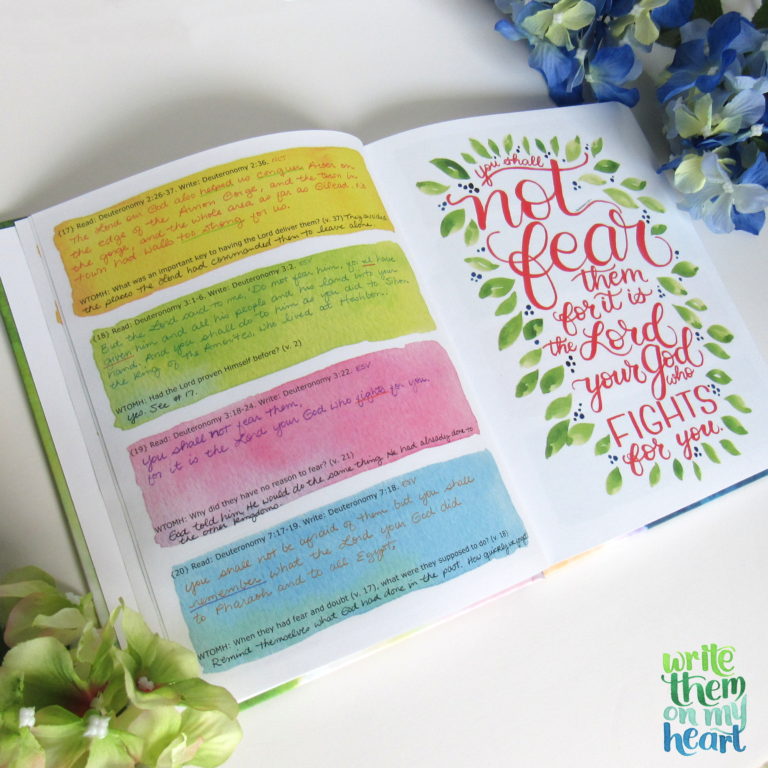 (17) Read: Deuteronomy 2:26-37. Write: Deuteronomy 2:36. NLT
The Lord our God also helped us conquer Aroer on
the edge of the Arnon Gorge, and the town in
the gorge, and the whole area as far as Gilead. No
town had walls too strong for us.
WTOMH: What was an important key to having the Lord deliver them? (v. 37) They avoided
the places the Lord had commanded them to leave alone.
(18) Read: Deuteronomy 3:1-6. Write: Deuteronomy 3:2. ESV
But the Lord said to me, Do not fear him, for I have
given him and all his people and his land into your
hand. And you shall do to him as you did to Sihon
the king of the Amorites, who lived at Heshbon.
WTOMH: Had the Lord proven Himself before? (v. 2)
Yes. See #17.
(19) Read: Deuteronomy 3:18-24. Write: Deuteronomy 3:22. ESV
You shall not fear them,
for it is the Lord your God who fights for you.
WTOMH: Why did they have no reason to fear? (v. 21)
God told him He would do the same thing He had already done to
the other kingdoms.
(20) Read: Deuteronomy 7:17-19. Write: Deuteronomy 7:18. ESV
You shall not be afraid of them but you shall
remember what the Lord your God did
to Pharaoh and to all Egypt.
WTOMH: When they had fear and doubt (v. 17), what were they supposed to do? (v. 18)
Remind themselves what God had done in the past. How quickly we forget
you shall
not
fear
them
for it is
the Lord
your God
who
FIGHTS
for you.
write
them
on my
heart